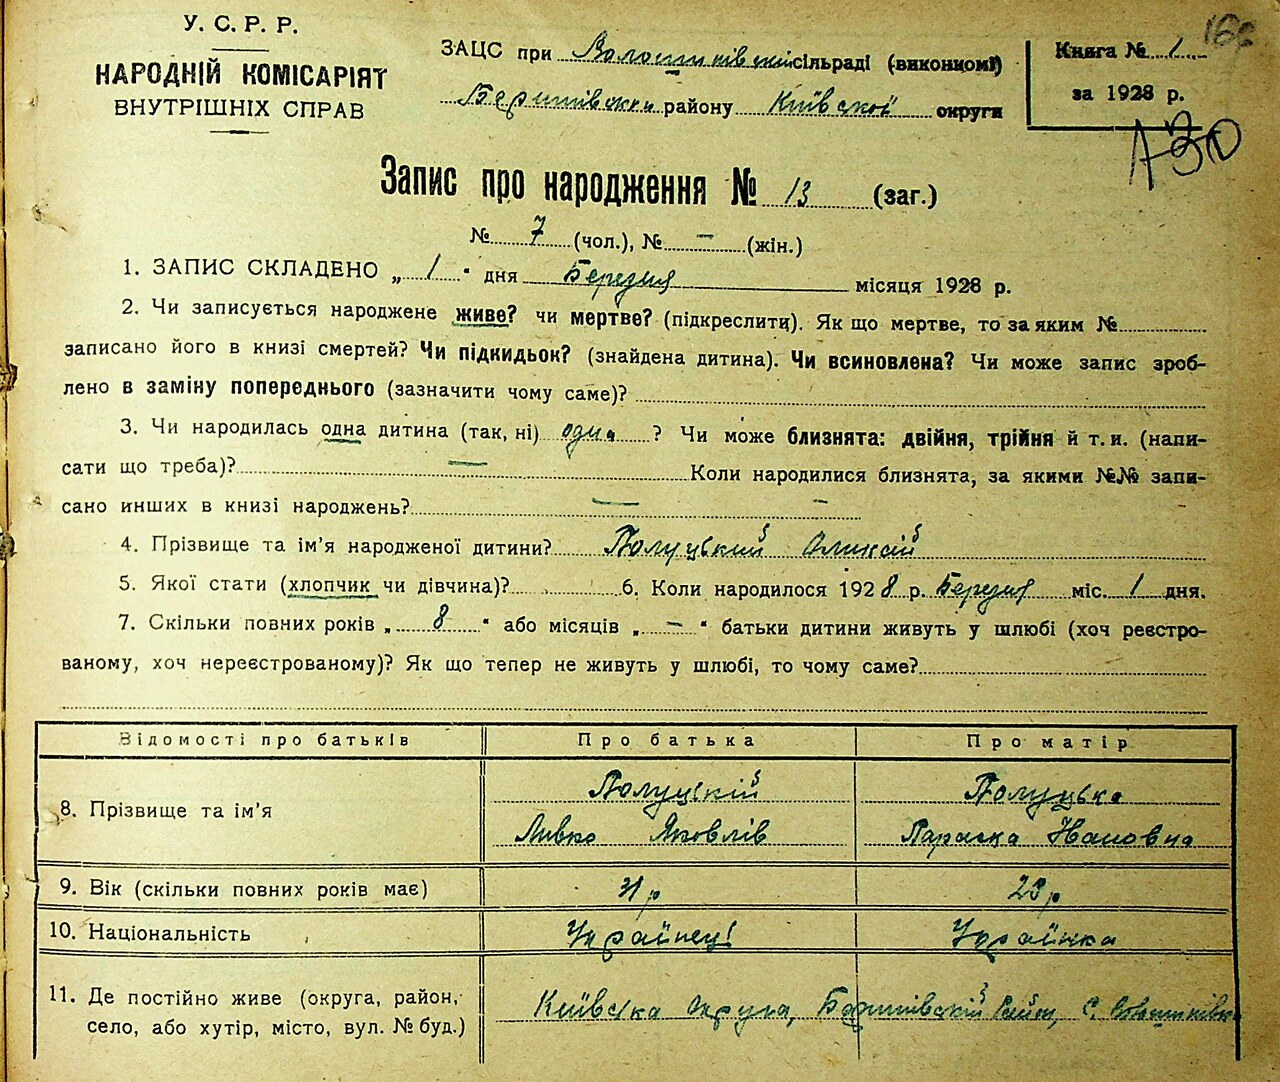 У. С. Р. Р.
НАРОДНІЙ КОМІСАРІЯТ
ВНУТРІШНІХ СПРАВ
ЗАЦС при Волошинівській сільраді (виконкомі)
району Київської округи
Книга № 1
за 1928 р.
166
Запис про народження № 13 (заг.)
№ 7 (чол.), № – (жін.)
1. ЗАПИС СКЛАДЕНО „ 1 “ дня Березня місяця 1928 р.
2. Чи записується народжене живе? чи мертве? (підкреслити). Як що мертве, то за яким №
записано його в книзі смертей? Чи підкидьок? (знайдена дитина). Чи всиновлена? Чи може запис зроб-
лено в заміну попереднього (зазначити чому саме)?
3. Чи народилась одна дитина (так, ні) одна ? Чи може близнята: двійня, трійня й т. и. (напи-
сати що треба)? — Коли народилися близнята, за якими №№ запи-
сано инших в книзі народжень? — –
4. Прізвище та ім’я народженої дитини? Полуцький Оликсій
5. Якої стати (хлопчик чи дівчина)? 6. Коли народилося 1928 р. Березня міс. 1 дня.
7. Скільки повних років „ 8 “ або місяців „ – “ батьки дитини живуть у шлюбі (хоч реєстро-
ваному, хоч нереєстрованому)? Як що тепер не живуть у шлюбі, то чому саме?
Відомості про батьків Про батька Про матір
8. Прізвище та ім’я Полуцькій Полуцька
Яковлів Параска Ивановна
9. Вік (скільки повних років має) 31 р
10. Національність Українець Українка
11. Де постійно живе (округа, район,
село, або хутір, місто, вул. № буд.) Київська округа, Район, С. Волошинівка